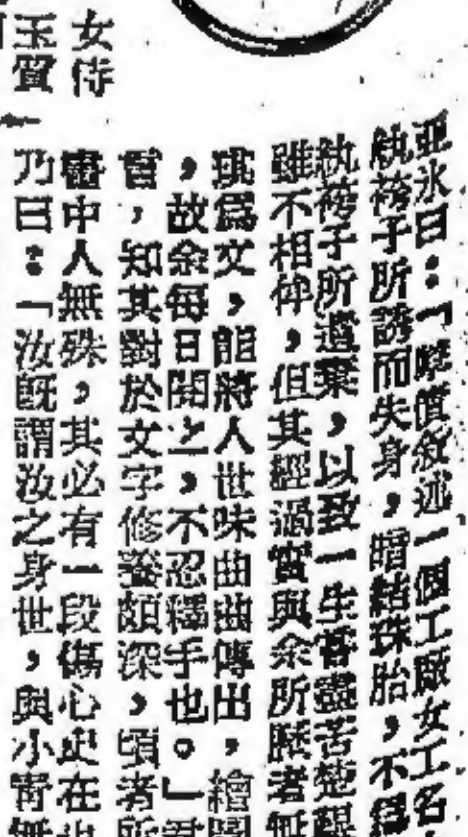 亞氷曰：「書敘述一個工廠女工名
紈袴子所誘而失身，暗結珠胎，不
紈袴子所遺棄，以致一生嘗盡苦楚
雖不相侔，但其經過實與余所歷者無
爲文，能將人世味曲曲傳出，繪
，故余每日閱之，不忍釋手也。」君
言，知其對於文字修養頗深，頃者所
書中人無殊，其必有一段傷心史在
乃曰：「汝旣謂汝之身世，與小青無
女侍
玉質